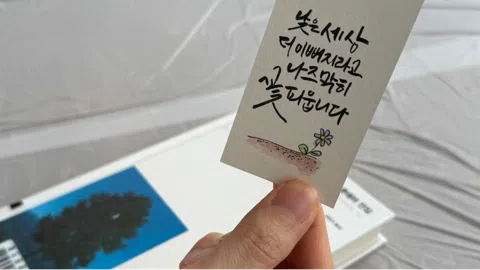 낮은 세상
더 이뻐지라고
나즈막히
꽃 피웁니다